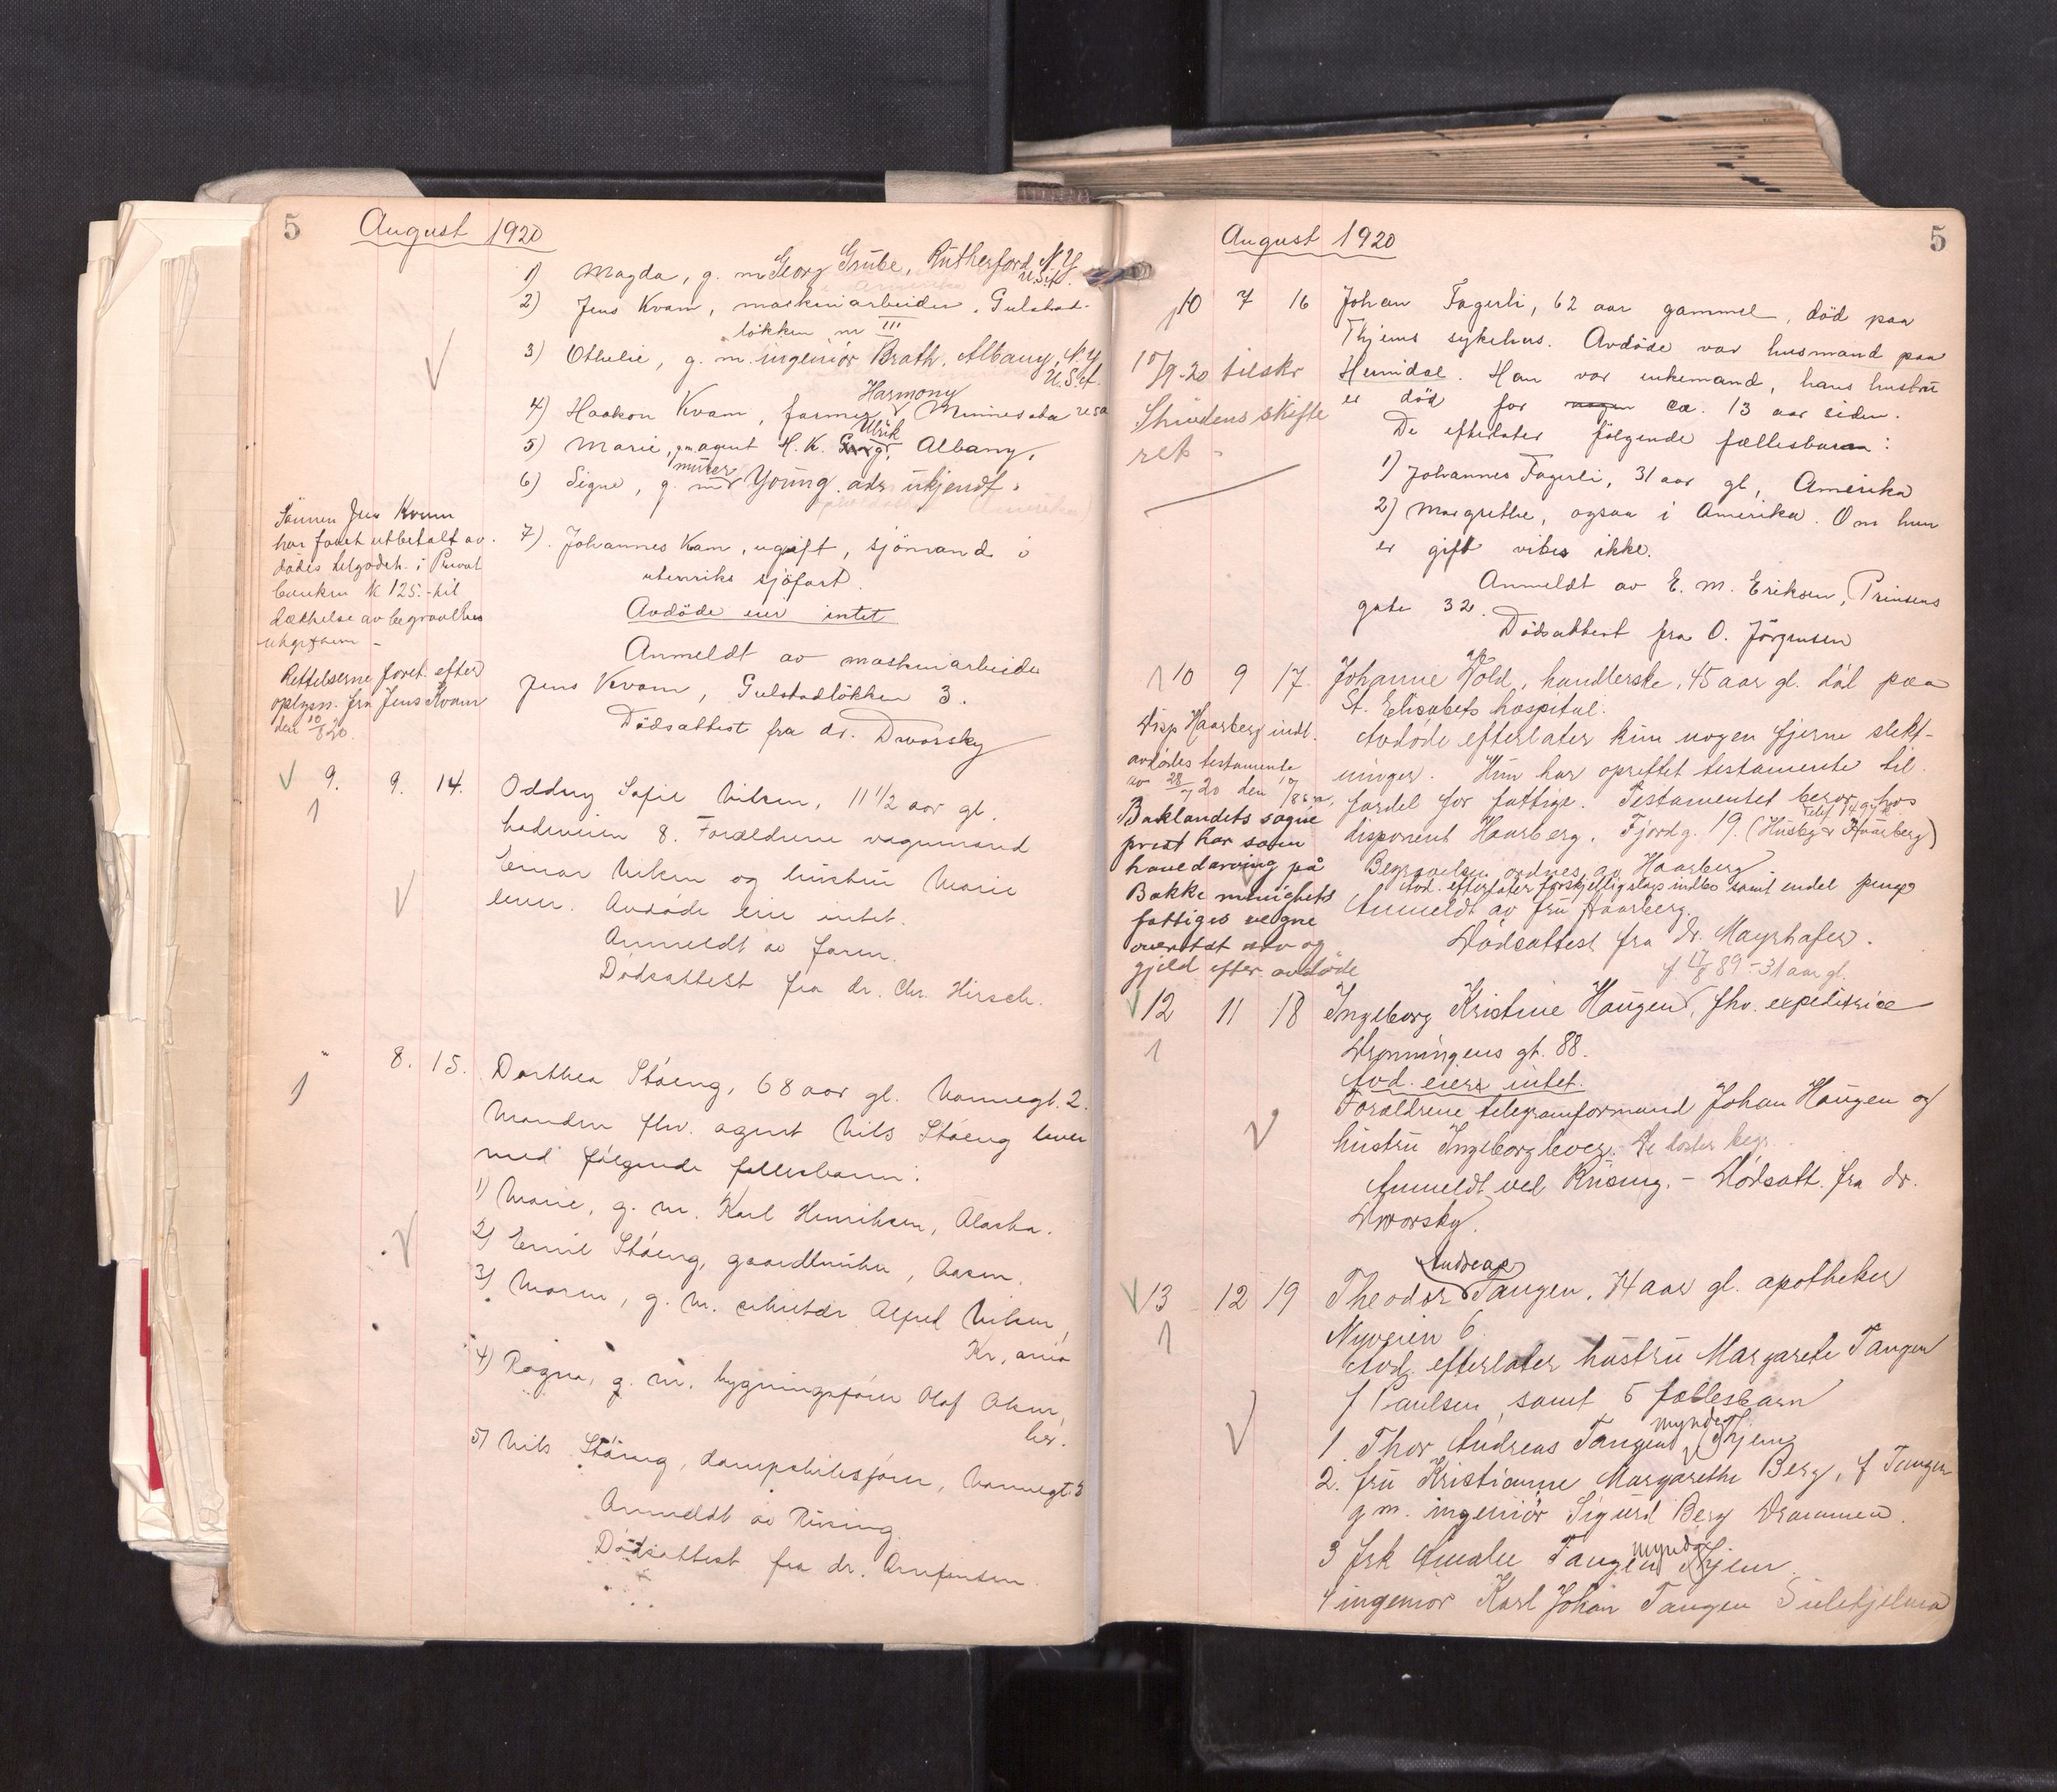 5
August 1920
1) Magda, g. m Georg Grube, Rutherford N.Y.
U.S.A.
2) Jens Kvam, maskinarbeider, Gulstad-
løkken nr III
3) Othelie, g. m. ingeniør Brath, Albany, N.Y.
U.S.A.
Harmony
4) Haakon Kvam, farmer, Minnesota
Ulrik
5) Marie, g. m. agent H. K. Albany,
murer
6) Signe, g. m Young. adr. ukjendt.
7) Johannes Kam, ugift, sjømand i
utenriks sjøfart.
Avdøde eier intet
Anmeldt av maskinarbeider
Jens Kvam, Gulstadløkken 3.
Dødsattest fra dr. Dworsky
Sønnen Jens Kvam
har faaet utbetalt av-
dødes tilgodeh. i Privat
banken k 125.- til
dækkelse av begravelses
utgifterne -
Rettelserne foret. efter
oplysn. fra Jens Kvam
den 10/8 20.
9. 9. 14. Oddny Sofie Nilsen, 11 1/2 aar gl.
1
8. Forældrene vognmand
Einar Nilsen og hustru Marie
lever. Avdøde eier intet.
Anmeldt av faren.
Dødsattest fra dr. Chr. Hirsch.
" 8. 15. Dorthea Støeng, 68 aar gl. Nonnegt. 2.
1
Manden fhv. agent Nils Støeng lever
med følgende fællesbarn:
1) Marie, g. m. Karl Henriksen, Alaska.
2) Emil Støeng, gaardbruker, Aasen.
3) Maren, g. m. Alfred Nilsen,
Kr.ania
4) Ragna, g. m. bygningsfører Olaf Olsen,
her.
5) Nils Støeng, dampskibsfører, Nonnegt. 2
Anmeldt av Rising.
Dødsattest fra dr. Arnfinsen
5
August 1920
10 7 16 Johan Fagerli, 62 aar gammel, død paa
Thjems sykehus. Avdøde var husmand paa
Heimdal. Han var enkemand, hans hustru
er død for nogen ca. 13 aar siden.
De efterlater følgende fællesbarn:
1) Johannes Fagerli, 31 aar gl, Amerika
2) Margrethe, ogsaa i Amerika. Om hun
er gift vites ikke.
Anmeldt av E. M. Eriksen, Prinsens
gate 32.
Dødsattest fra O. Jørgensen
18/9-20 tilskr
Strindens skifte
ret -
10 9 17. Johanne Wold, handlerske, 45 aar gl. død paa
St. Elisabets hospital.
Avdøde efterlater kun nogen fjerne slekt-
ninger. Hun har oprettet testamente til
fordel for fattige. Testamentet beror hos
disponent Haarberg, Fjordg. 19. (Husby & Haarberg)
Begravelsen ordnes av Haarberg
Avd. efterlater forskjelligslags indbo samt endel penge
Anmeldt av fru Haarberg.
Dødsattest fra dr. Mayrhafer.
Disp Haarberg indl.
avdødes testamente
av 28/7 20 den
Baklandets sogne
prest har som
hovedarving på
Bakke menighets
fattiges vegne
overtat arv og
gjeld efter avdøde
f 17/8 89 - 31 aar gl.
12 11 18 Ingeborg Kristine Haugen, fhv. expeditrice
1
Dronningens gt. 88.
Avd. eier intet.
Forældrene telegramformand Johan Haugen og
hustru Ingeborg lever. De koster begr.
Anmeldt ved Rising. - Dødsatt. fra dr.
Dworsky.
Andreas
13 12 19 Theodor Tangen, 74 aar gl. apotheker
1
Nyveien 6.
Avd. efterlater hustru Margarete Tangen
f Paulsen, samt 5 fællesbarn
myndig
1. Thor Andreas Tangen, Thjem
2. fru Kristianne Margarethe Berg, f Tangen
g m. ingeniør Sigurd Berg Drammen.
myndig
3 frk Amalie Tangen Thjem
4 ingeniør Karl Johan Tangen Sulitjelma